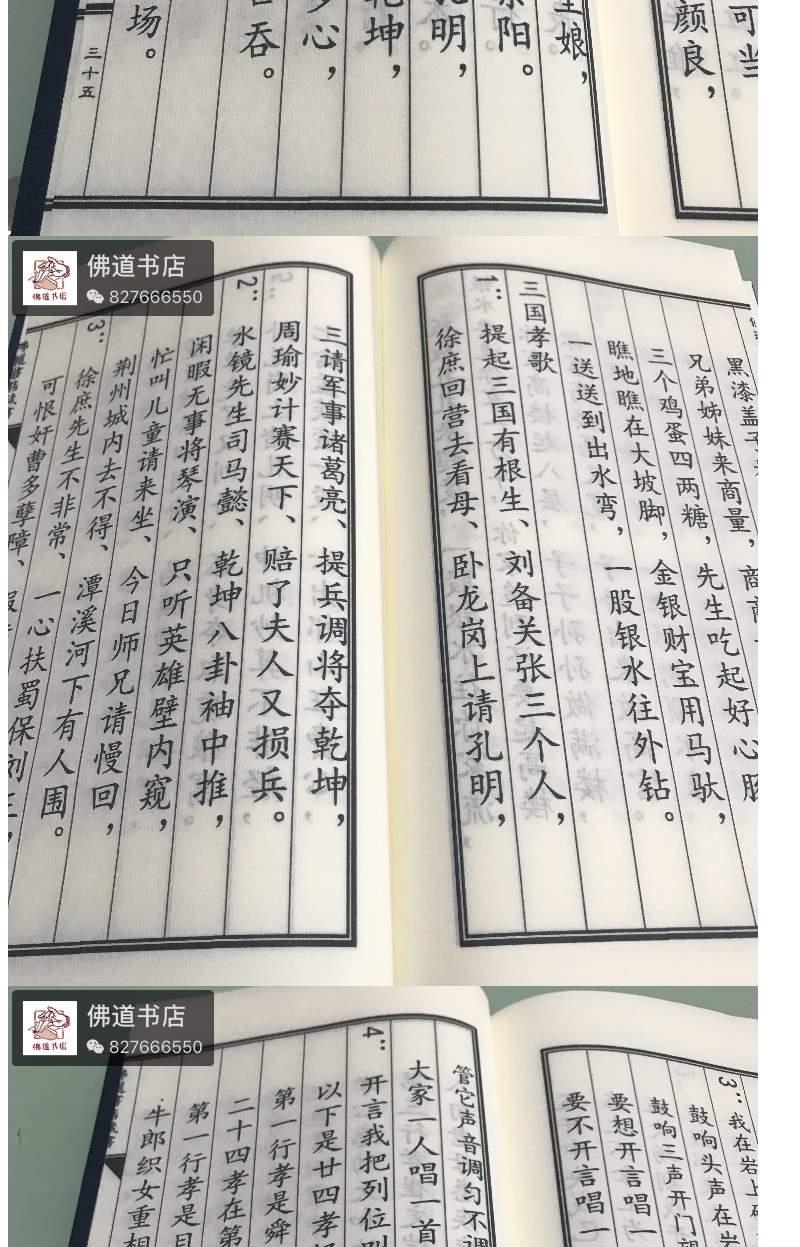 可当
颜良，
娘，
阳。
明，
坤，
心，
吞。
场。
三十五
佛道书店
827666550
黑漆盖
兄弟姊妹来商量，
三个鸡蛋四两糖，先生吃起好心
瞧地瞧在大坡脚，金银财宝用马驮，
一送送到出水弯，一股银水往外钻。
三国孝歌
1：提起三国有根生、刘备关张三个人，
徐庶回营去看母、卧龙岗上请孔明，
三请军事诸葛亮、提兵调将夺乾坤，
周瑜妙计赛天下、赔了夫人又损兵。
2：水镜先生司马懿、乾坤八卦袖中推，
闲暇无事将琴演、只听英雄壁内窥，
忙叫儿童请来坐、今日师兄请慢回，
荆州城内去不得、潭溪河下有人围。
3：徐庶先生不非常、一心扶蜀保刘
可恨奸曹多孽障、
佛道书店
827666550
3：我在岩上
鼓响头声在岩
鼓响三声开门
要想开言唱一
要不开言唱一
管它声音调匀不
大家一人唱一首
4：开言我把列位
以下是廿四孝
第一行孝是舜
二十四孝在第
第一行孝是
牛郎织女重相